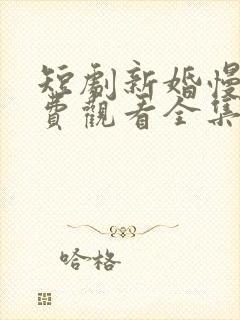 短劇新婚慢
費觀看全集
哈格